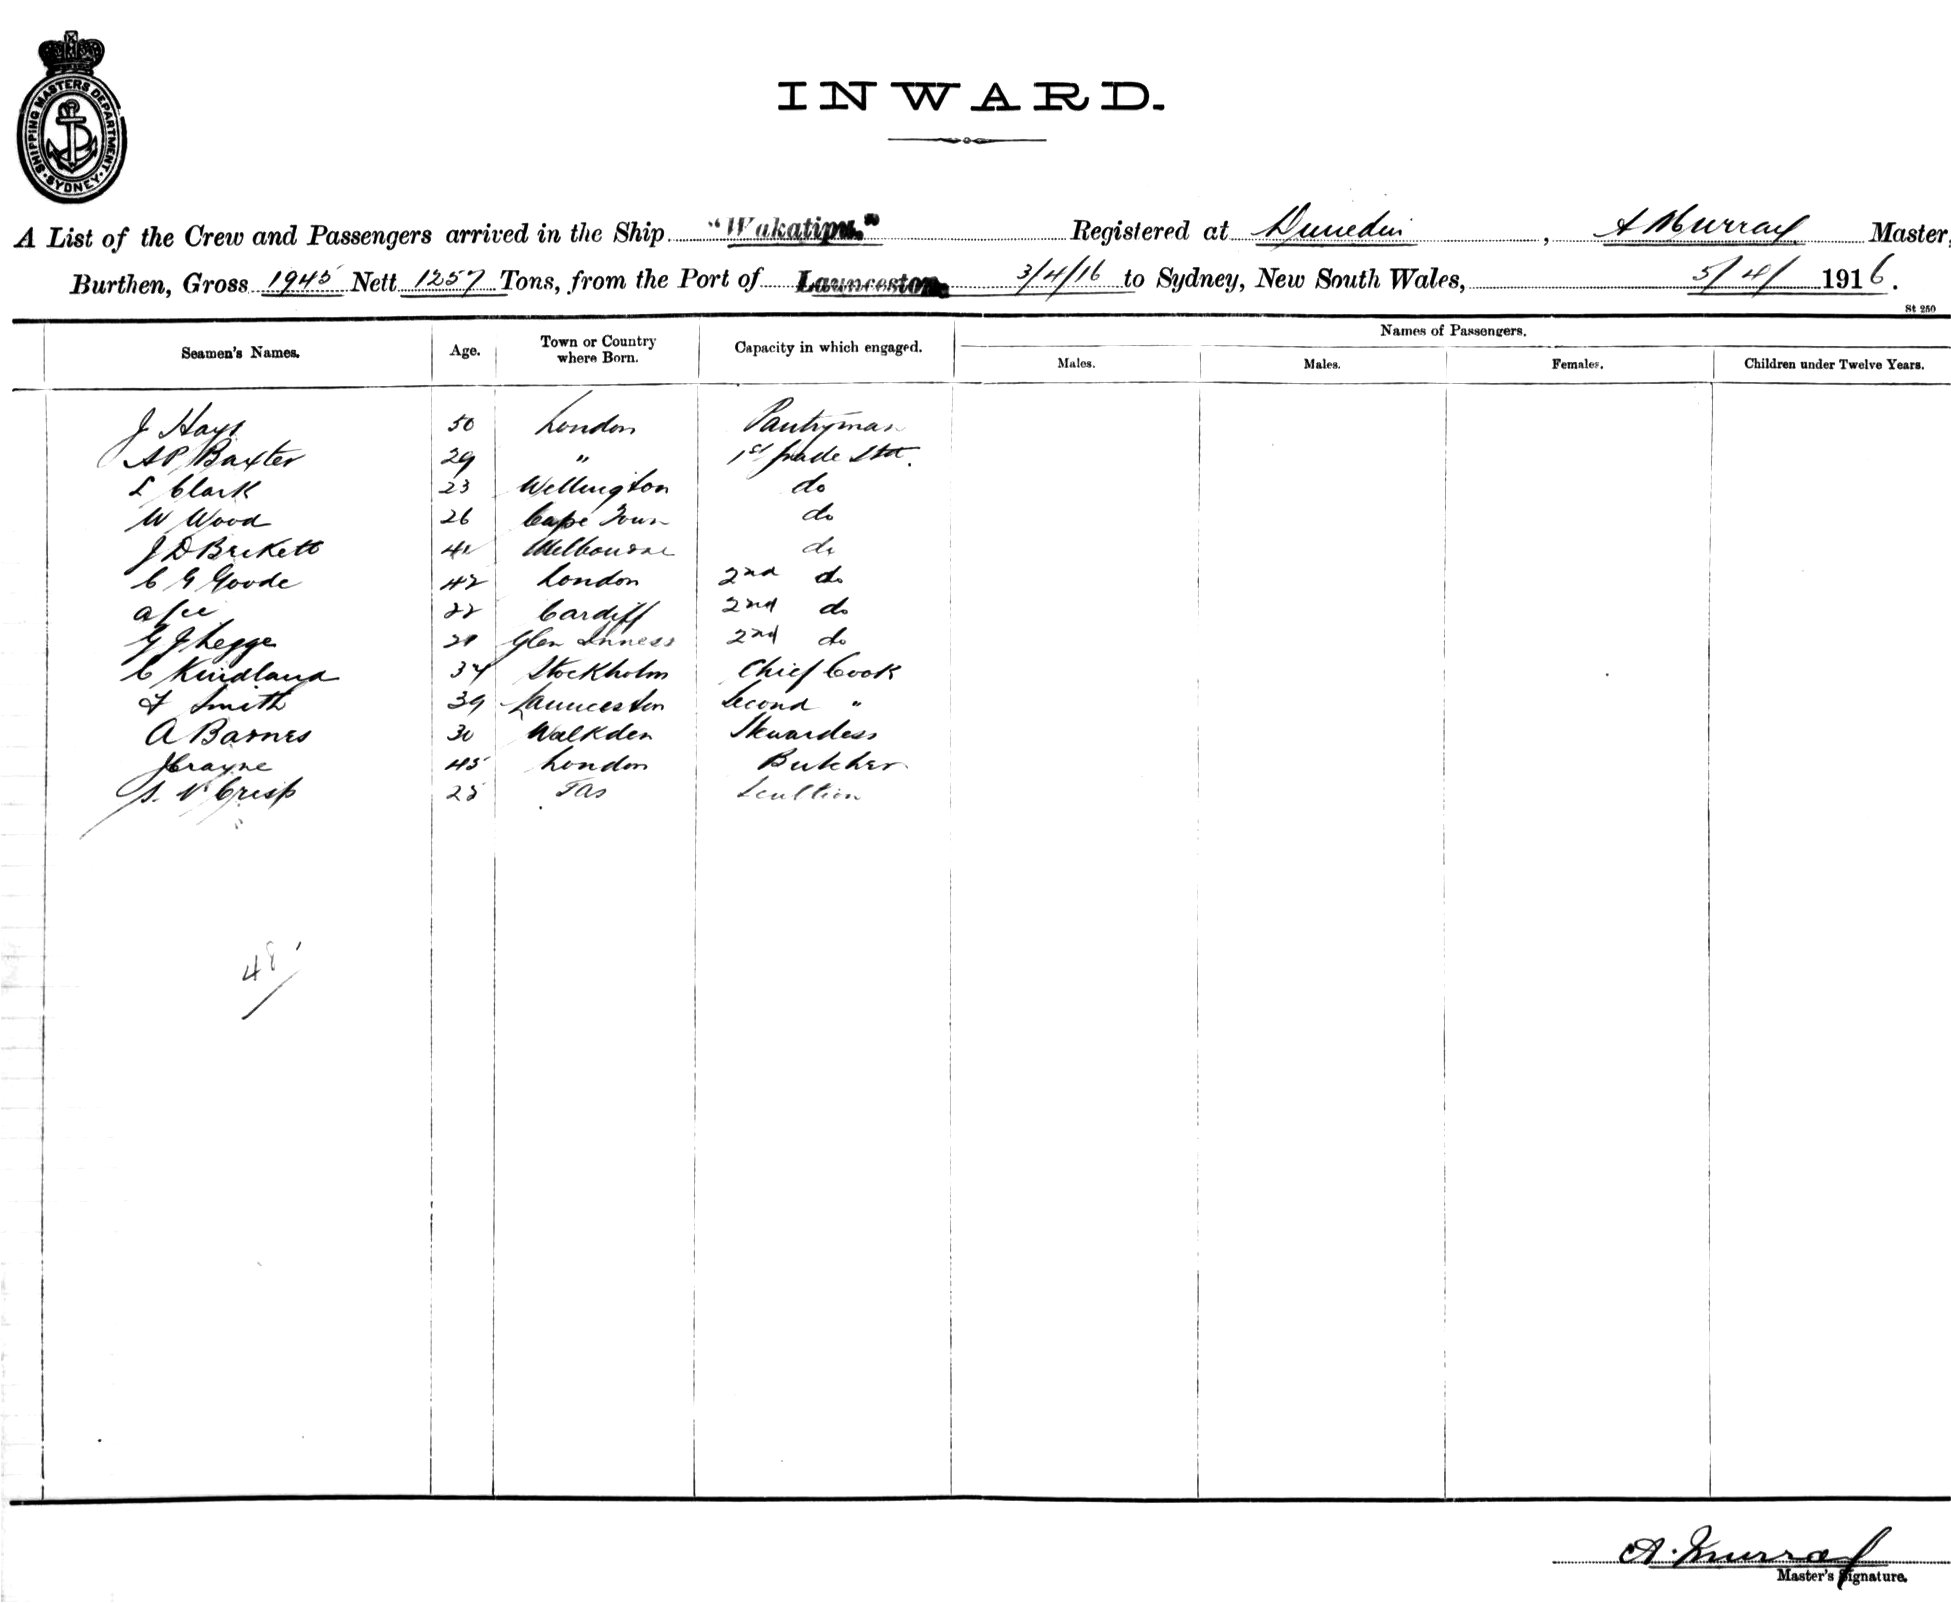 SHIPPING MASTERS DEPARTMENT · SYDNEY ·
INWARD.
A List of the Crew and Passengers arrived in the Ship "Wakatipu." Registered at Dunedin, A Murray Master,
Burthen, Gross 1945 Nett 1257 Tons, from the Port of Launceston 3/4/16 to Sydney, New South Wales, 5/4/ 1916.
St 250
Seamen's Names. Age. Town or Country where Born. Capacity in which engaged. Names of Passengers.
Males. Males. Females. Children under Twelve Years.
J Hays 50 London Pantryman
A P Baxter 29 " 1st Grade Std.
L Clark 23 Wellington do
W Wood 26 Cape Town do
J D Brckett Melbourne do
C G Goode 42 London 2nd do
A 22 Cardiff 2nd do
G J Legge Glen Inness 2nd do
C Kindland 34 Stockholm Chief Cook
F Smith 39 Launceston Second "
A Barnes 30 Walkden Stewardess
J Crayne 45 London Butcher
V Crisp 25 Tas Scullion
48
A. Murray
Master's Signature.